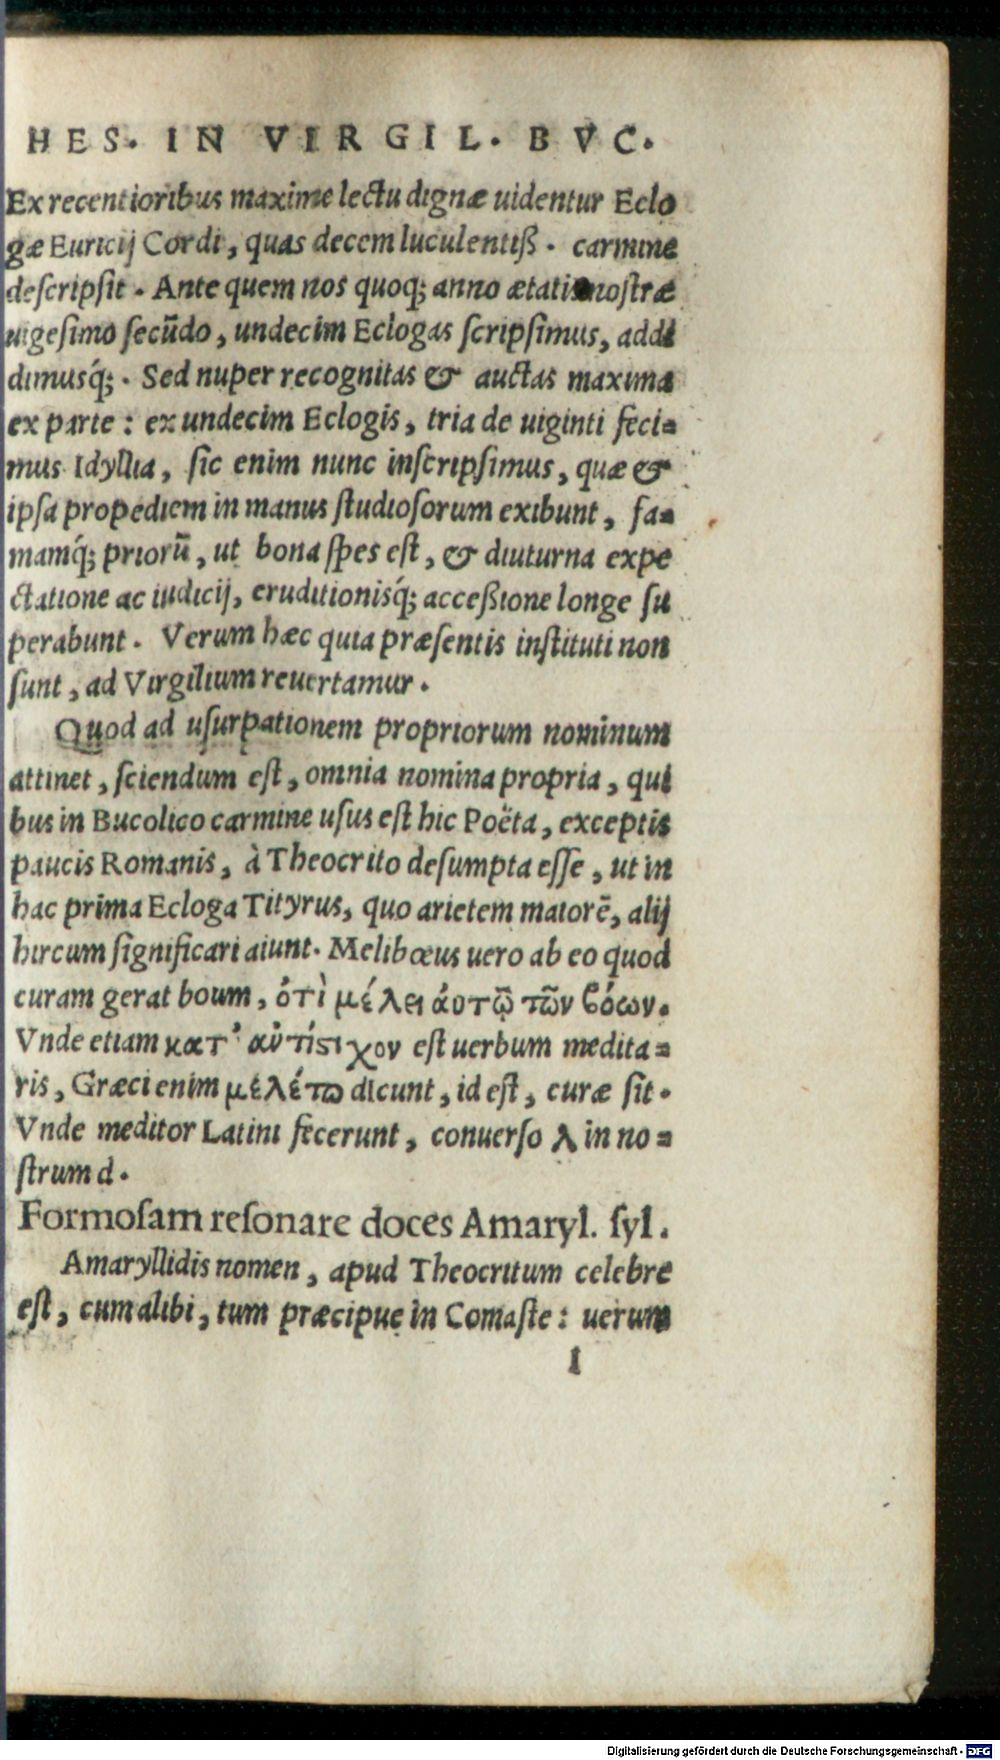 HES. IN VIRGIL. BVC.
Ex recentioribus maxime lectu dignæ uidentur Eclo
gæ Euricij Cordi, quas decem luculentiß. carmine
descripsit. Ante quem nos quoq; anno ætatis nostræ
uigesimo secūdo, undecim Eclogas scripsimus, addi
dimusq́;. Sed nuper recognitas & auctas maxima
ex parte: ex undecim Eclogis, tria de uiginti feci=
mus Idyllia, sic enim nunc inscripsimus, quæ &
ipsa propediem in manus studiosorum exibunt, fa=
mamq́; priorū, ut bona spes est, & diuturna expe
ctatione ac iudicij, eruditionisq́; acceßione longe su
perabunt. Verum hæc quia præsentis instituti non
sunt, ad Virgilium reuertamur.
Quod ad usurpationem propriorum nominum
attinet, sciendum est, omnia nomina propria, qui
bus in Bucolico carmine usus est hic Poëta, exceptis
paucis Romanis, à Theocrito desumpta esse, ut in
hac prima Ecloga Tityrus, quo arietem maiorē, alij
hircum significari aiunt. Melibœus uero ab eo quod
curam gerat boum, ὁτὶ μέλει ἀυτῷ τῶν βόων.
Vnde etiam κατ' αὐτίστιχον est uerbum medita=
ris, Græci enim μελέτω dicunt, id est, curæ sit.
Vnde meditor Latini fecerunt, conuerso λ in no=
strum d.
Formosam resonare doces Amaryl. syl.
Amaryllidis nomen, apud Theocritum celebre
est, cum alibi, tum præcipue in Comaste: uerum
I
Digitalisierung gefördert durch die Deutsche Forschungsgemeinschaft - DFG